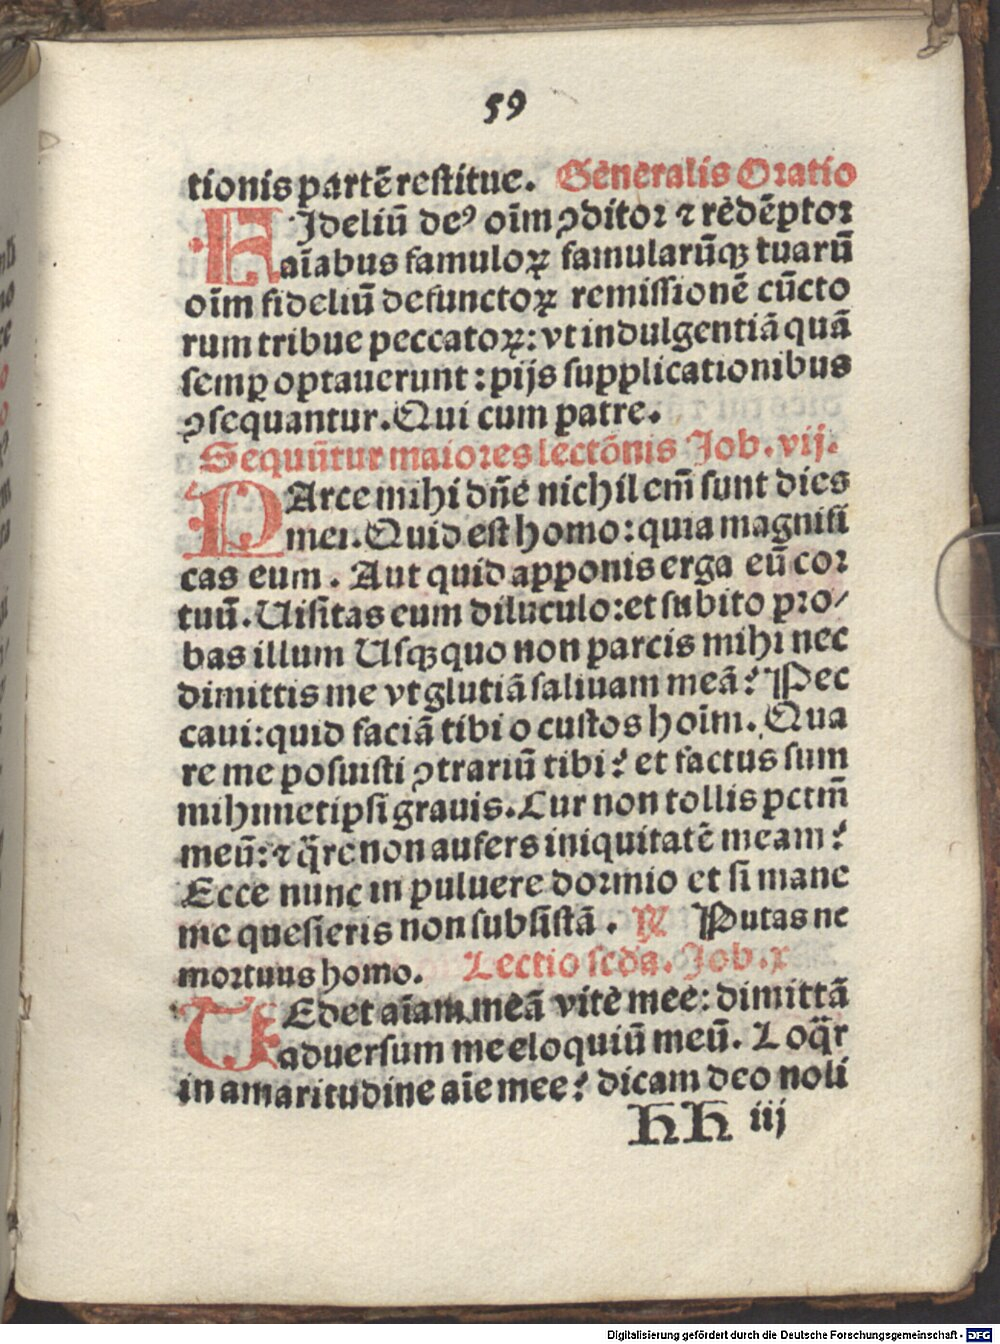 59
tionis partē restitue. Generalis Oratio
FJdeliū deꝰ oīm ꝯditor ⁊ redēptor
aīabus famuloꝝ famularūqꝫ tuarū
oīm fideliū defunctoꝝ remissionē cūcto
rum tribue peccatoꝝ: vt indulgentiā quā
semꝑ optauerunt: pijs supplicationibus
ꝯsequantur. Qui cum patre.
Sequūtur maiores lectōnis Job. vij.
PArce mihi dñe nichil em̄ sunt dies
mei. Quid est homo: quia magnifi
cas eum. Aut quid apponis erga eū cor
tuū. Uisitas eum diluculo: et subito pro/
bas illum Usqꝫ quo non parcis mihi nec
dimittis me vt glutiā saliuam meā? Pec
caui: quid faciā tibi o custos hoīm. Qua
re me posuisti ꝯtrariū tibi? et factus sum
mihimetipsi grauis. Cur non tollis pctm̄
meū: ⁊ q̈re non aufers iniquitatē meam?
Ecce nunc in puluere dormio et si mane
me quesieris non subsistā. ℟ Putas ne
mortuus homo. Lectio scda. Job. x
TEdet aīam meā vite mee: dimittā
aduersum me eloquiū meū. Loq̈r
in amaritudine aīe mee? dicam deo noli
hh iij
Digitalisierung gefördert durch die Deutsche Forschungsgemeinschaft - DFG